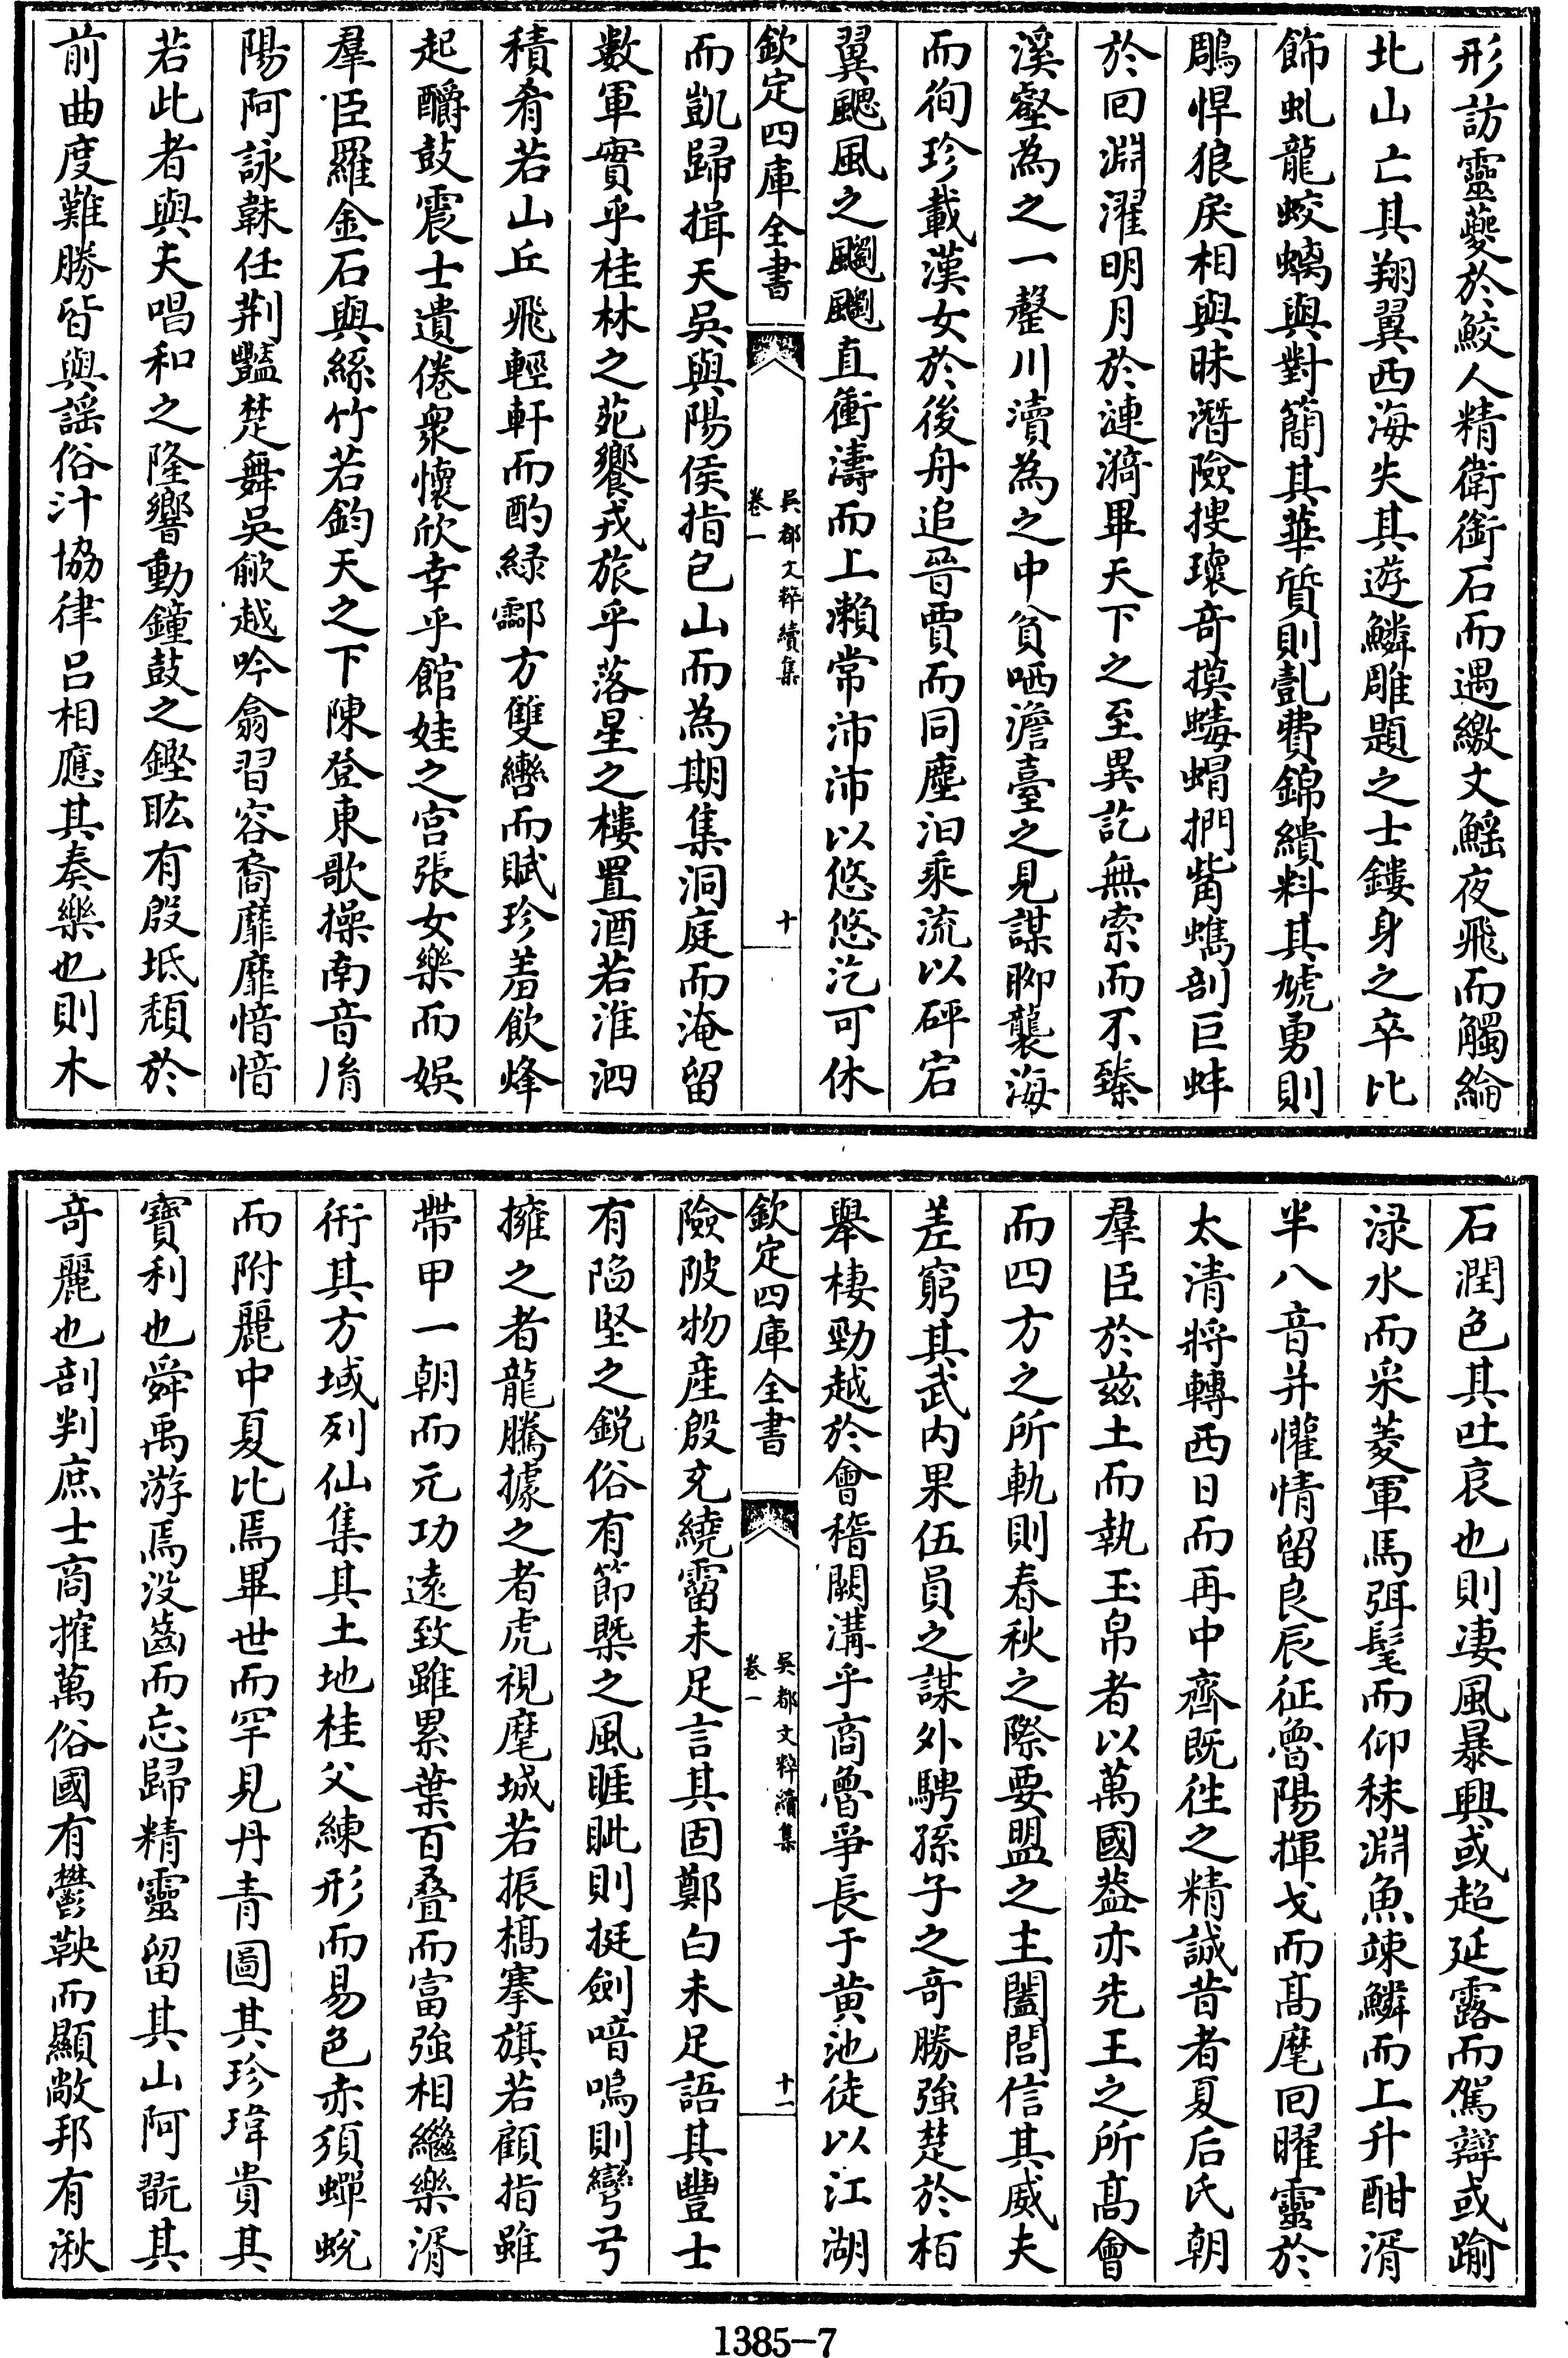 形訪靈夔於鮫人精衛銜石而遇繳文鰩夜飛而觸綸
北山亡其翔翼西海失其遊鱗雕題之士鏤身之卒比
飾虬龍蛟螭與對簡其華質則亄費錦繢料其虓勇則
鵰悍狼戾相與昧潛險搜瓌奇摸蝳蝐捫觜蠵剖巨蚌
於回淵濯明月於漣漪畢天下之至異訖無索而不臻
溪壑為之一罄川瀆為之中貧哂澹臺之見謀聊襲海
而徇珍載漢女於後舟追晉賈而同塵汩乘流以砰宕
翼颸風之䬟䬟直衝濤而上瀨常沛沛以悠悠汔可休
欽定四庫全書
吳都文粹續集
卷一
十
而凱歸揖天吳與陽侯指包山而為期集洞庭而淹留
數軍實乎桂林之苑饗戎旅乎落星之樓置酒若淮泗
積肴若山丘飛輕軒而酌緑酃方雙轡而賦珍羞飲烽
起釂鼓震士遺倦衆懷欣幸乎館娃之宮張女樂而娛
羣臣羅金石與絲竹若鈞天之下陳登東歌操南音胤
陽阿詠韎任荆豔楚舞吳歈越吟翕習容裔靡靡愔愔
若此者與夫唱和之隆響動鐘鼓之鏗耾有殷坻頹於
前曲度難勝皆與謡俗汁協律呂相應其奏樂也則木
石潤色其吐哀也則淒風暴興或超延露而駕辯或踰
渌水而采菱軍馬弭髦而仰秣淵魚竦鱗而上升酣湑
半八音并懽情留良辰征魯陽揮戈而髙麾回曜靈於
太清將轉西日而再中齊既徃之精誠昔者夏后氏朝
羣臣於兹土而執玉帛者以萬國蓋亦先王之所髙會
而四方之所軌則春秋之際要盟之主闔閭信其威夫
差窮其武内果伍員之謀外騁孫子之奇勝強楚於栢
舉棲勁越於會稽闕溝乎商魯爭長于黄池徒以江湖
欽定四庫全書
吳都文粹續集
卷一
十一
險陂物產殷充繞霤未足言其固鄭白未足語其豐士
有陷堅之鋭俗有節槩之風睚眦則挺劍喑嗚則彎弓
擁之者龍騰據之者虎視麾城若振槁搴旗若顧指雖
帶甲一朝而元功遠致雖累葉百疊而富強相繼樂湑
衎其方域列仙集其土地桂父練形而易色赤須蟬蛻
而附麗中夏比焉畢世而罕見丹青圖其珍瑋貴其
寶利也舜禹游焉沒齒而忘歸精靈留其山阿翫其
奇麗也剖判庶士商搉萬俗國有鬱鞅而顯敞邦有湫
1385-7